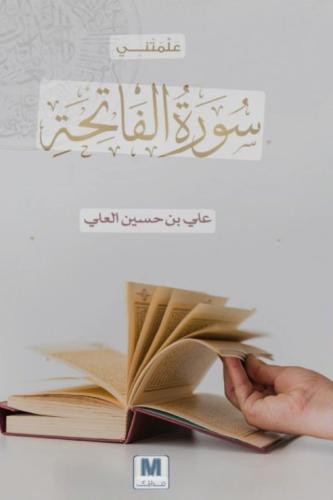 علمتني
سُورَةُ الفَاتِحَةِ
علي بن حسين العلي
M